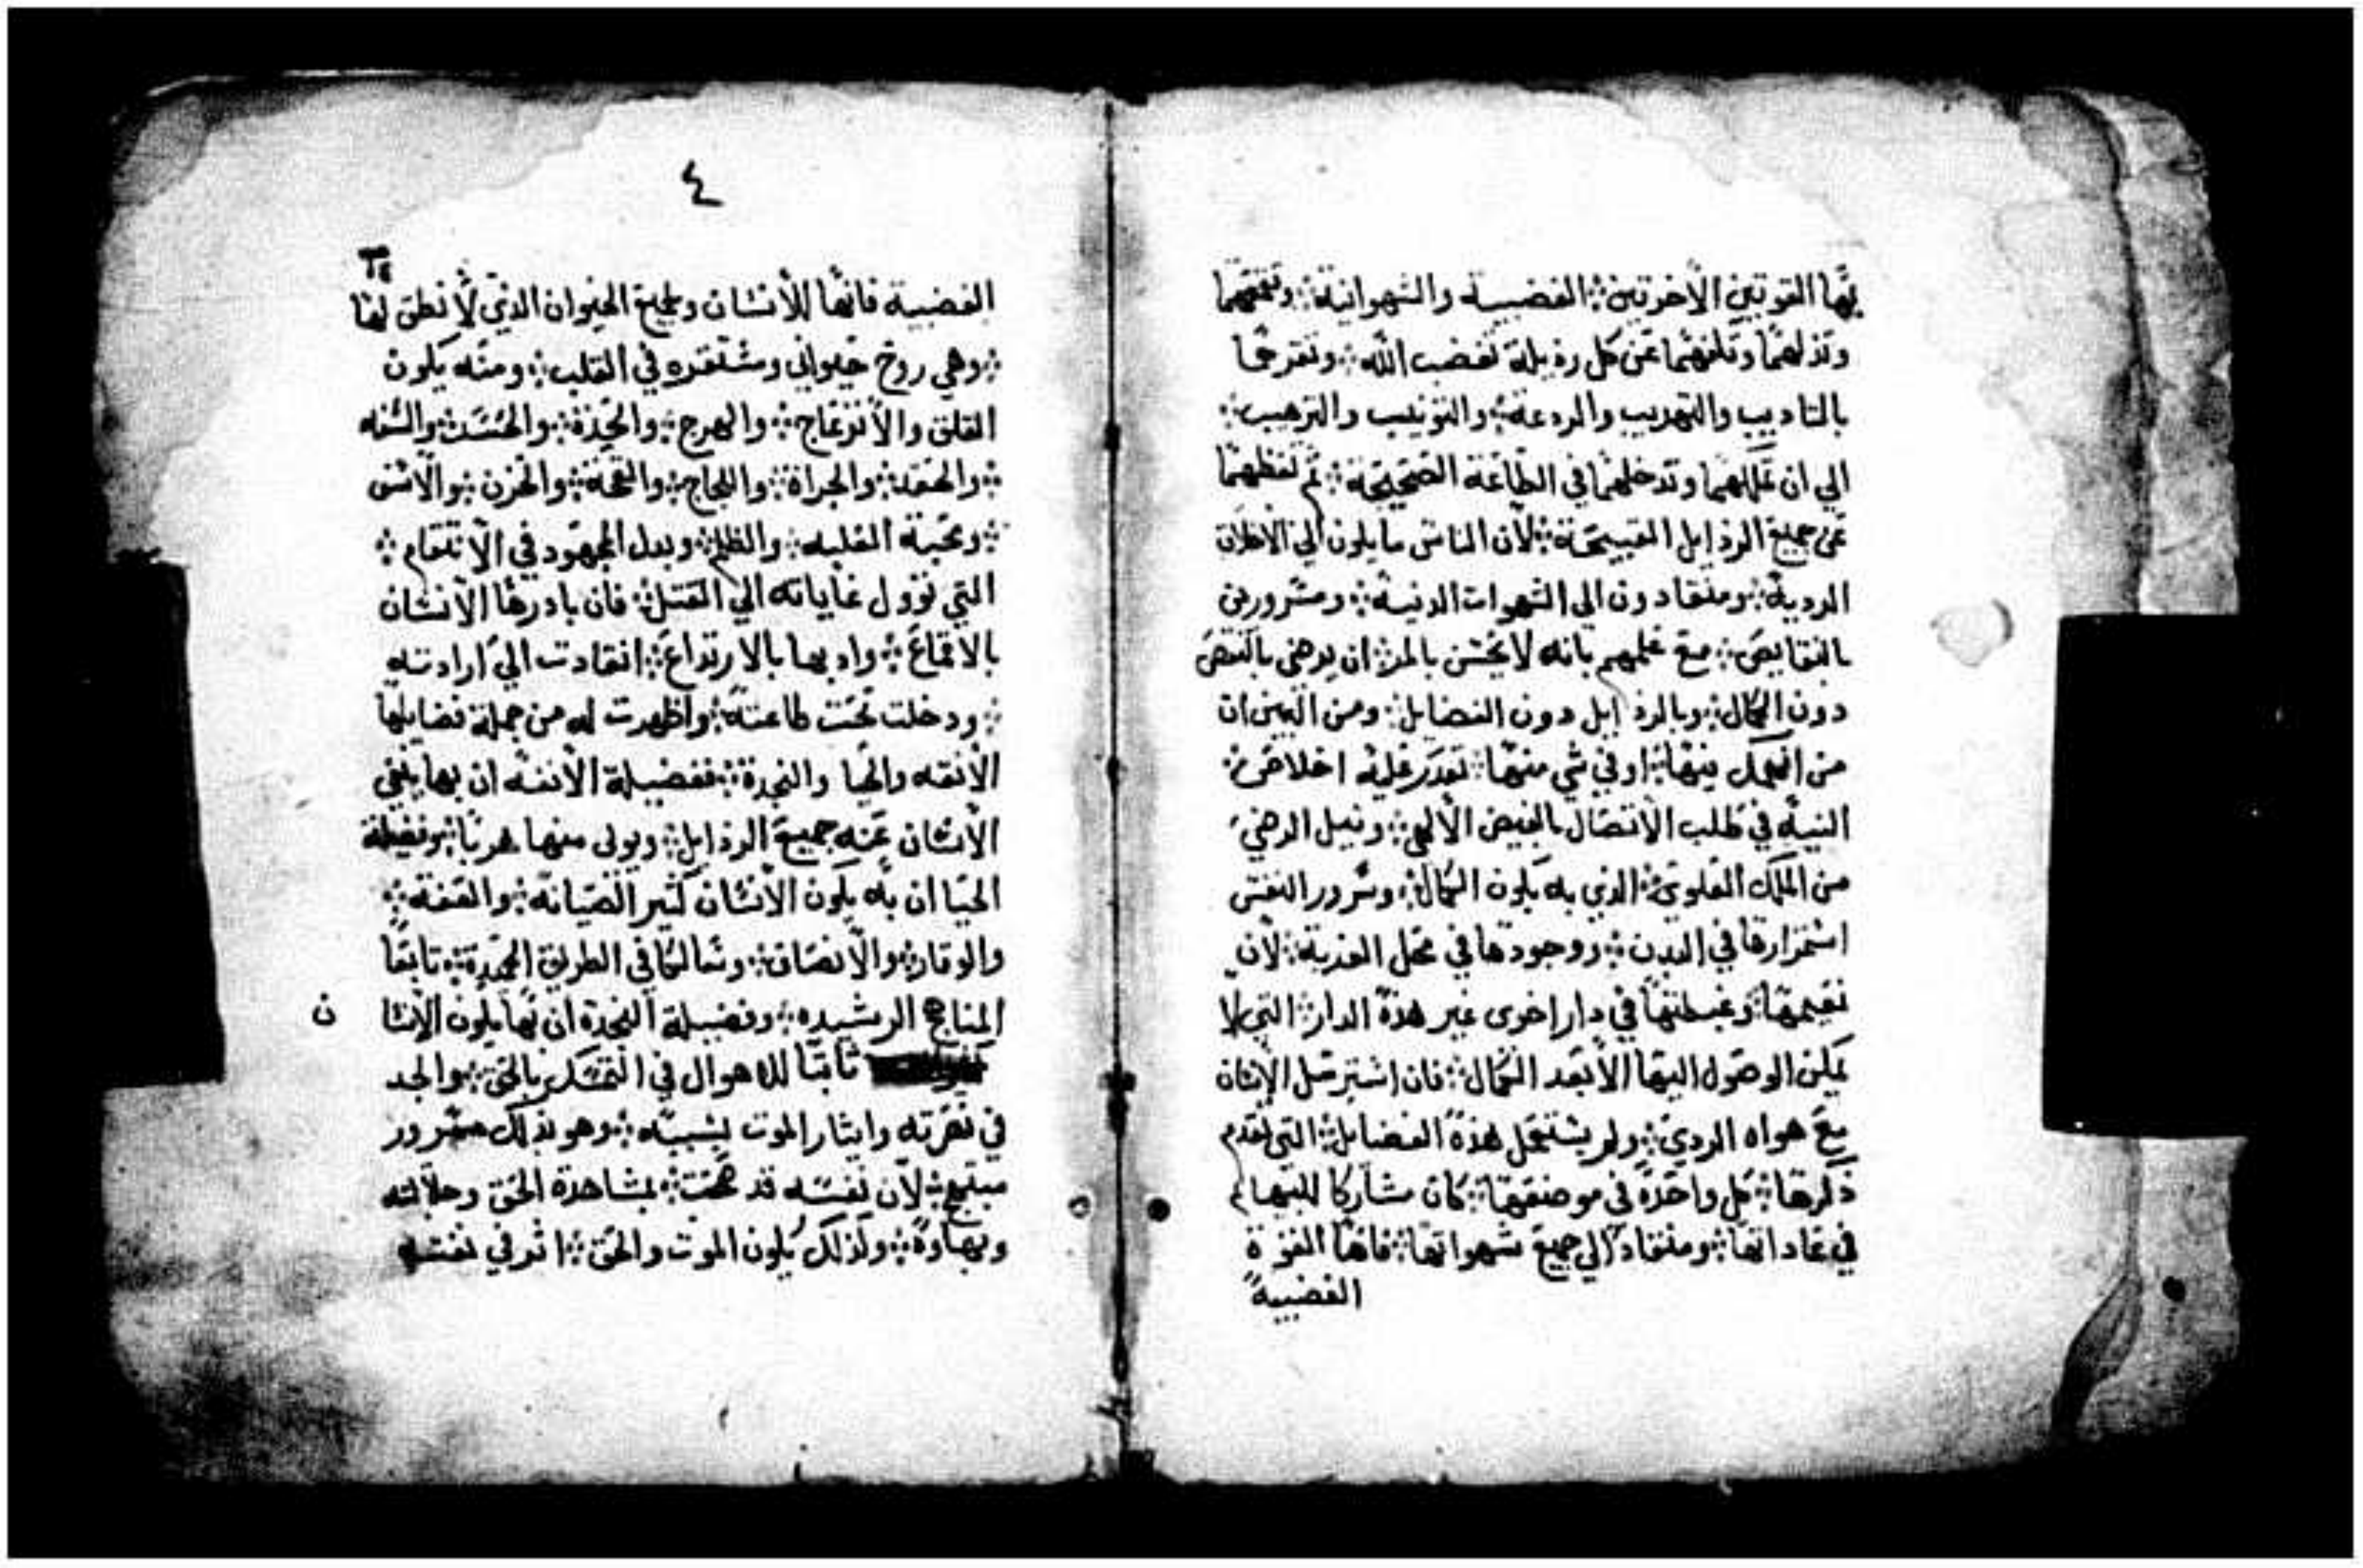 بها القوتين الاخرتين ܀ الغضبية والشهوانية ܀ وتقمعهما
وتذلهما وتكفهما عن كل رذيلة تغضب الله ܀ وتقرعها
بالتاديب والتهديب والردعة ܀ والتونيب والترهيب ܀
الي ان تملكهما وتدخلهما في الطاعة الصحيحة ܀ ثم تفطمهما
عن جميع الردايل القبيحة ܀ لان الناس مايلون الي الاخلاق
الردية ܀ ومنقادون الي الشهوات الدنية ܀ ومسرورين
بالنقايص ܀ مع علمهم بانه لا يحسن بالمر ان يرضى بالنقص
دون الكمال ܀ وبالرذايل دون الفضايل ܀ ومن البين ان
من انهمل بينها ܀ او في شي منها ܀ تعدر عليه اخلاص ܀
النية في طلب الاتصال بالفيض الالهي ܀ ونيل الرضي
من الملك العلوي ܀ الذي به يكون الكمال ܀ وسرور النفس
استمرارها في البدن ܀ ووجودها في محل الغربة ܀ لان
نعيمها وغبطتها في دار اخرى غير هذه الدار ܀ التي لا
يمكن الوصول اليها الا بعد الكمال ܀ فان استرسل الانسان
مع هواه الردي ܀ ولم يستعمل هذه الفضايل ܀ التي تقدم
ذكرها ܀ كل واحدة في موضعها ܀ كان مشاركا للبهايم
في عاداتها ܀ ومنقاد الي جميع شهواتها ܀ فاما القوة
الغضبية
٤
الغضبية فانها للانسان ولجميع الحيوان الذي لا نطق لها
܀ وهي روح حيواني ومستقره في القلب ܀ ومنه يكون
القلق والانزعاج ܀ والهرج ܀ والحدة ܀ والحسد ܀ والسفه
܀ والحقد ܀ والجراة ܀ واللجاج ܀ والقحة ܀ والحزن ܀ والاسى
܀ ومحبة الغلبه ܀ والظلم ܀ وبدل المجهود في الانتقام ܀
التي تؤول غاياته الي القتل ܀ فان بادرها الانسان
بالاقماع ܀ وادبها بالارتداع ܀ انقادت الي ارادته
܀ ودخلت تحت طاعته ܀ واظهرت له من جملة فضايلها
الانفه والحيا والنجدة ܀ ففضيلة الانفه ان بها ينفي
الانسان عنه جميع الرذايل ܀ ويولى منها هربا ܀ وفضيلة
الحيا ان به يكون الانسان كثير الصيانة ܀ والعفة ܀
والوقار ܀ والانصاف ܀ وسالكا في الطريق الحميدة ܀ تابعا
المناهج الرشيده ܀ وفضيلة النجدة ان بها يكون الانسا
ن
ثابتا للاهوال في التمسك بالحق ܀ والجد
في نصرته وايثار الموت بسببه ܀ وهو بذلك مسرور
مبتهج ܀ لان نفسه قد تمت ܀ بمشاهدة الحق وجلالته
وبهاوه ܀ ولذلك يكون الموت والحق ܀ اثر في نفسه